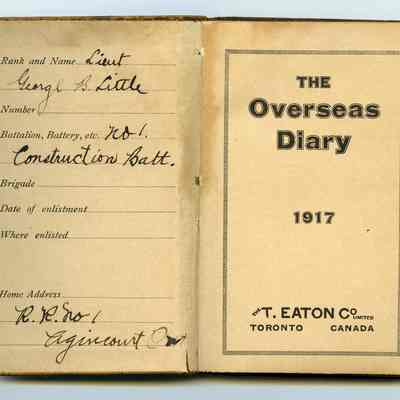 Rank and Name Lieut
George B. Little
Number
Battalion, Battery, etc. No 1.
Construction Batt.
Brigade
Date of enlistment
Where enlisted
Home Address
R. R. No 1
Agincourt Ont
THE
Overseas
Diary
1917
THE T. EATON CO LIMITED
TORONTO CANADA